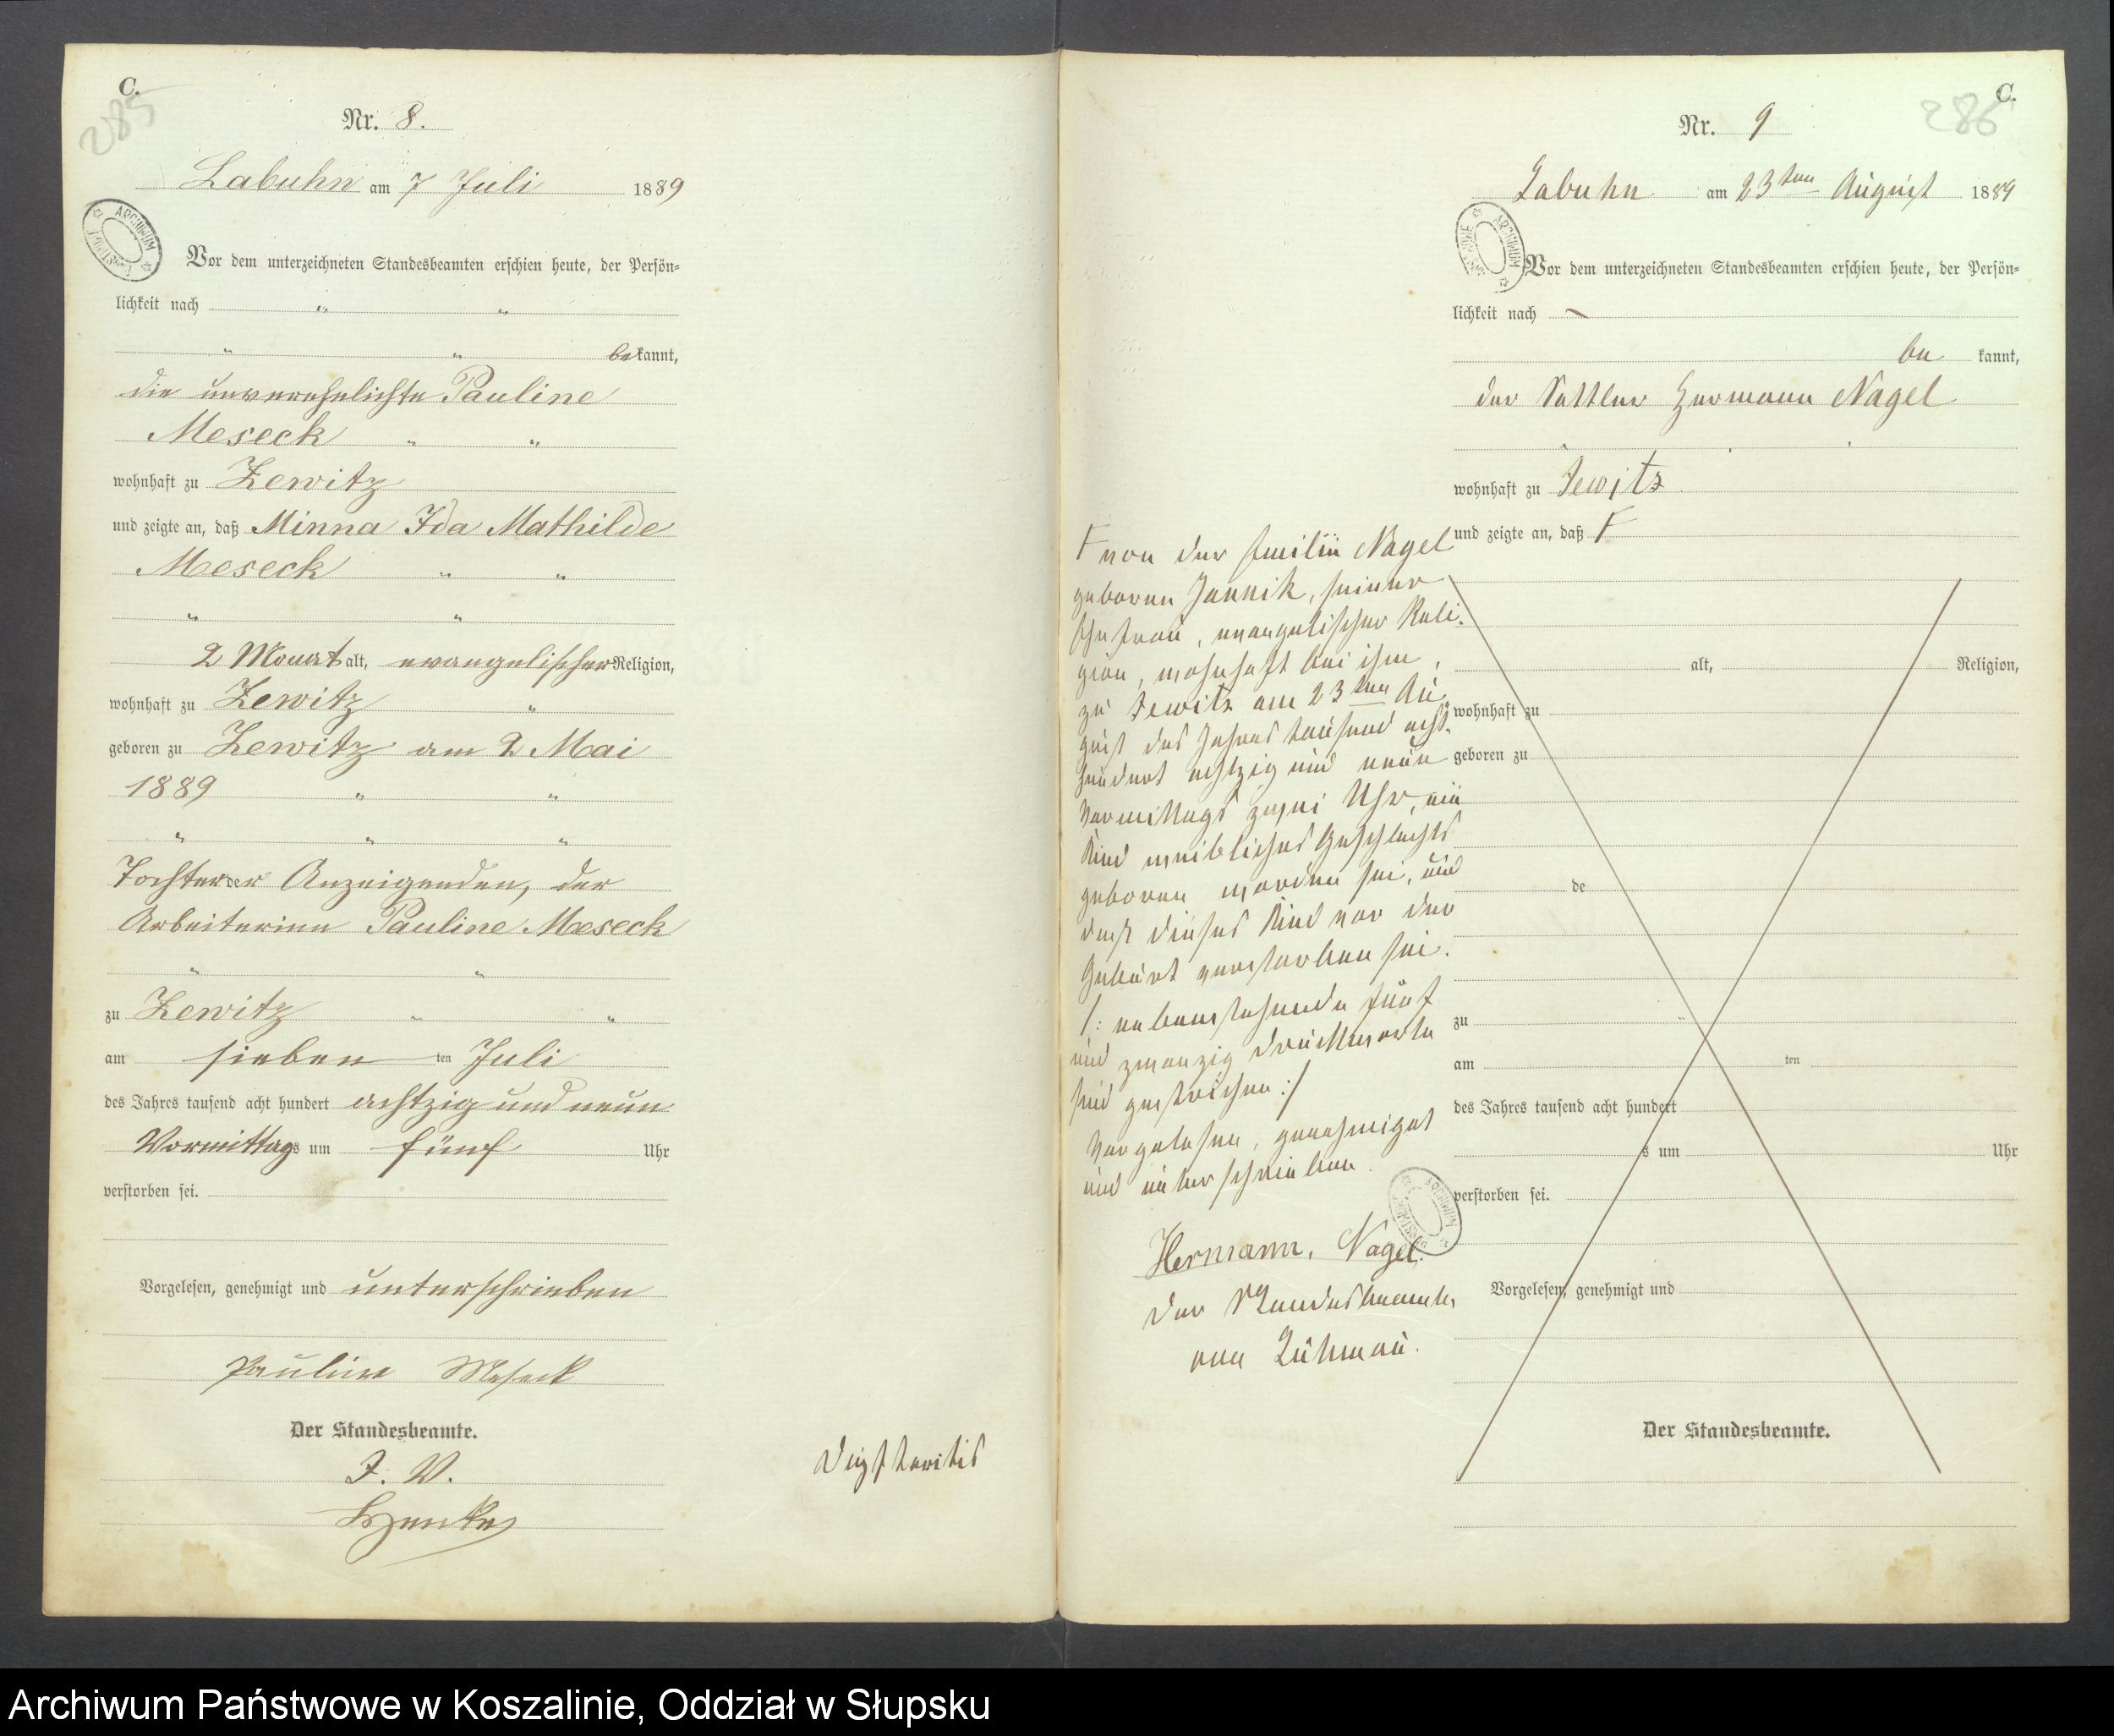 C.
285
Nr. 8.
Labuhn am 7 Juli 1889
Vor dem unterzeichneten Standesbeamten erschien heute, der Persön=
lichkeit nach " "
" " bekannt,
die unverehelichte Pauline
Meseck " "
wohnhaft zu Zewitz
und zeigte an, daß Minna Ida Mathilde
Meseck " "
" "
2 Monat alt, evangelischer Religion,
wohnhaft zu Zewitz "
geboren zu Zewitz am 2 Mai
1889 " "
" " "
Tochter der Anzeigenden, der
Arbeiterinn Pauline Meseck
" "
zu Zewitz " "
am sieben ten Juli
des Jahres tausend acht hundert achtzig und neun
Vormittags um fünf Uhr
verstorben sei.
Vorgelesen, genehmigt und unterschrieben
Pauline Meseck
Der Standesbeamte.
I. V.
ARCHIWUM
C.
286
Nr. 9
Labuhn am 23ten August 1889
Vor dem unterzeichneten Standesbeamten erschien heute, der Persön=
lichkeit nach
be kannt,
der Sattler Hermann Nagel
wohnhaft zu Zewitz
und zeigte an, daß F
F von der Emilie Nagel
geboren Jannik, seiner
Ehefrau, evangelischer Reli-
gion, wohnhaft bei ihm,
zu Zewitz am 23ten Au-
gust des Jahres tausend acht-
hundert achtzig und neun
Vormittags zwei Uhr, ein
Kind weibliches Geschlechts
geboren worden sei, und
daß dieses Kind vor der
Geburt verstorben sei.
/: nebenstehende fünf
und zwanzig Druckworte
sind gestrichen :/
Vorgelesen, genehmiget
und unterschrieben.
Hermann, Nagel.
Der Standesbeamte,
alt, Religion,
wohnhaft zu
geboren zu
de
zu
am ten
des Jahres tausend acht hundert
s um Uhr
verstorben sei.
Vorgelesen, genehmigt und
Der Standesbeamte.
ARCHIWUM
ARCHIWUM
Archiwum Państwowe w Koszalinie, Oddział w Słupsku